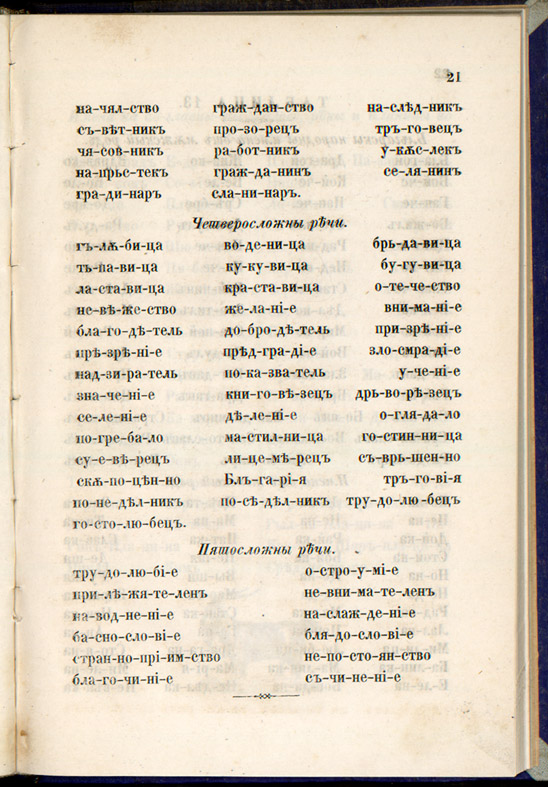 21
на-чял-ство граж-дан-ство на-слѣд-никъ
съ-вѣт-никъ про-зо-рецъ тръ-го-вецъ
чя-сов-никъ ра-бот-никъ у-кѫс-лекъ
на-прьс-текъ граж-да-нинъ се-ля-нинъ
гра-ди-наръ сла-ни-наръ.
Четверосложны рѣчи.
гъ-лѫ-би-ца во-де-ни-ца брь-да-ви-ца
тъ-па-ви-ца ку-ку-ви-ца бу-гу-ви-ца
ла-ста-ви-ца кра-ста-ви-ца о-те-че-ство
не-вѣ-же-ство же-ла-ні-е вни-ма-ні-е
бла-го-дѣ-тель до-бро-дѣ-тель при-зрѣ-ні-е
прѣ-зрѣ-ні-е прѣд-гра-ді-е зло-смра-ді-е
над-зи-ра-тель по-ка-зва-тель у-че-ні-е
зна-че-ні-е кни-го-вѣ-зецъ дрь-во-рѣ-зецъ
се-ле-ні-е дѣ-ле-ні-е о-гля-да-ло
по-гре-ба-ло ма-стил-ни-ца го-стин-ни-ца
су-е-вѣ-рецъ ли-це-мѣ-рецъ съ-врь-шен-но
скѫ-по-цѣн-но Блъ-га-рі-я тръ-го-ві-я
по-не-дѣл-никъ по-сѣ-дѣл-никъ тру-до-лю-бецъ
го-сто-лю-бецъ.
Пятосложны рѣчи.
тру-до-лю-бі-е о-стро-у-мі-е
при-лѣ-жя-те-ленъ не-вни-ма-те-ленъ
на-вод-не-ні-е на-слаж-де-ні-е
ба-сно-сло-ві-е бля-до-сло-ві-е
стран-но-прі-им-ство не-по-сто-ян-ство
бла-го-чи-ні-е съ-чи-не-ні-е